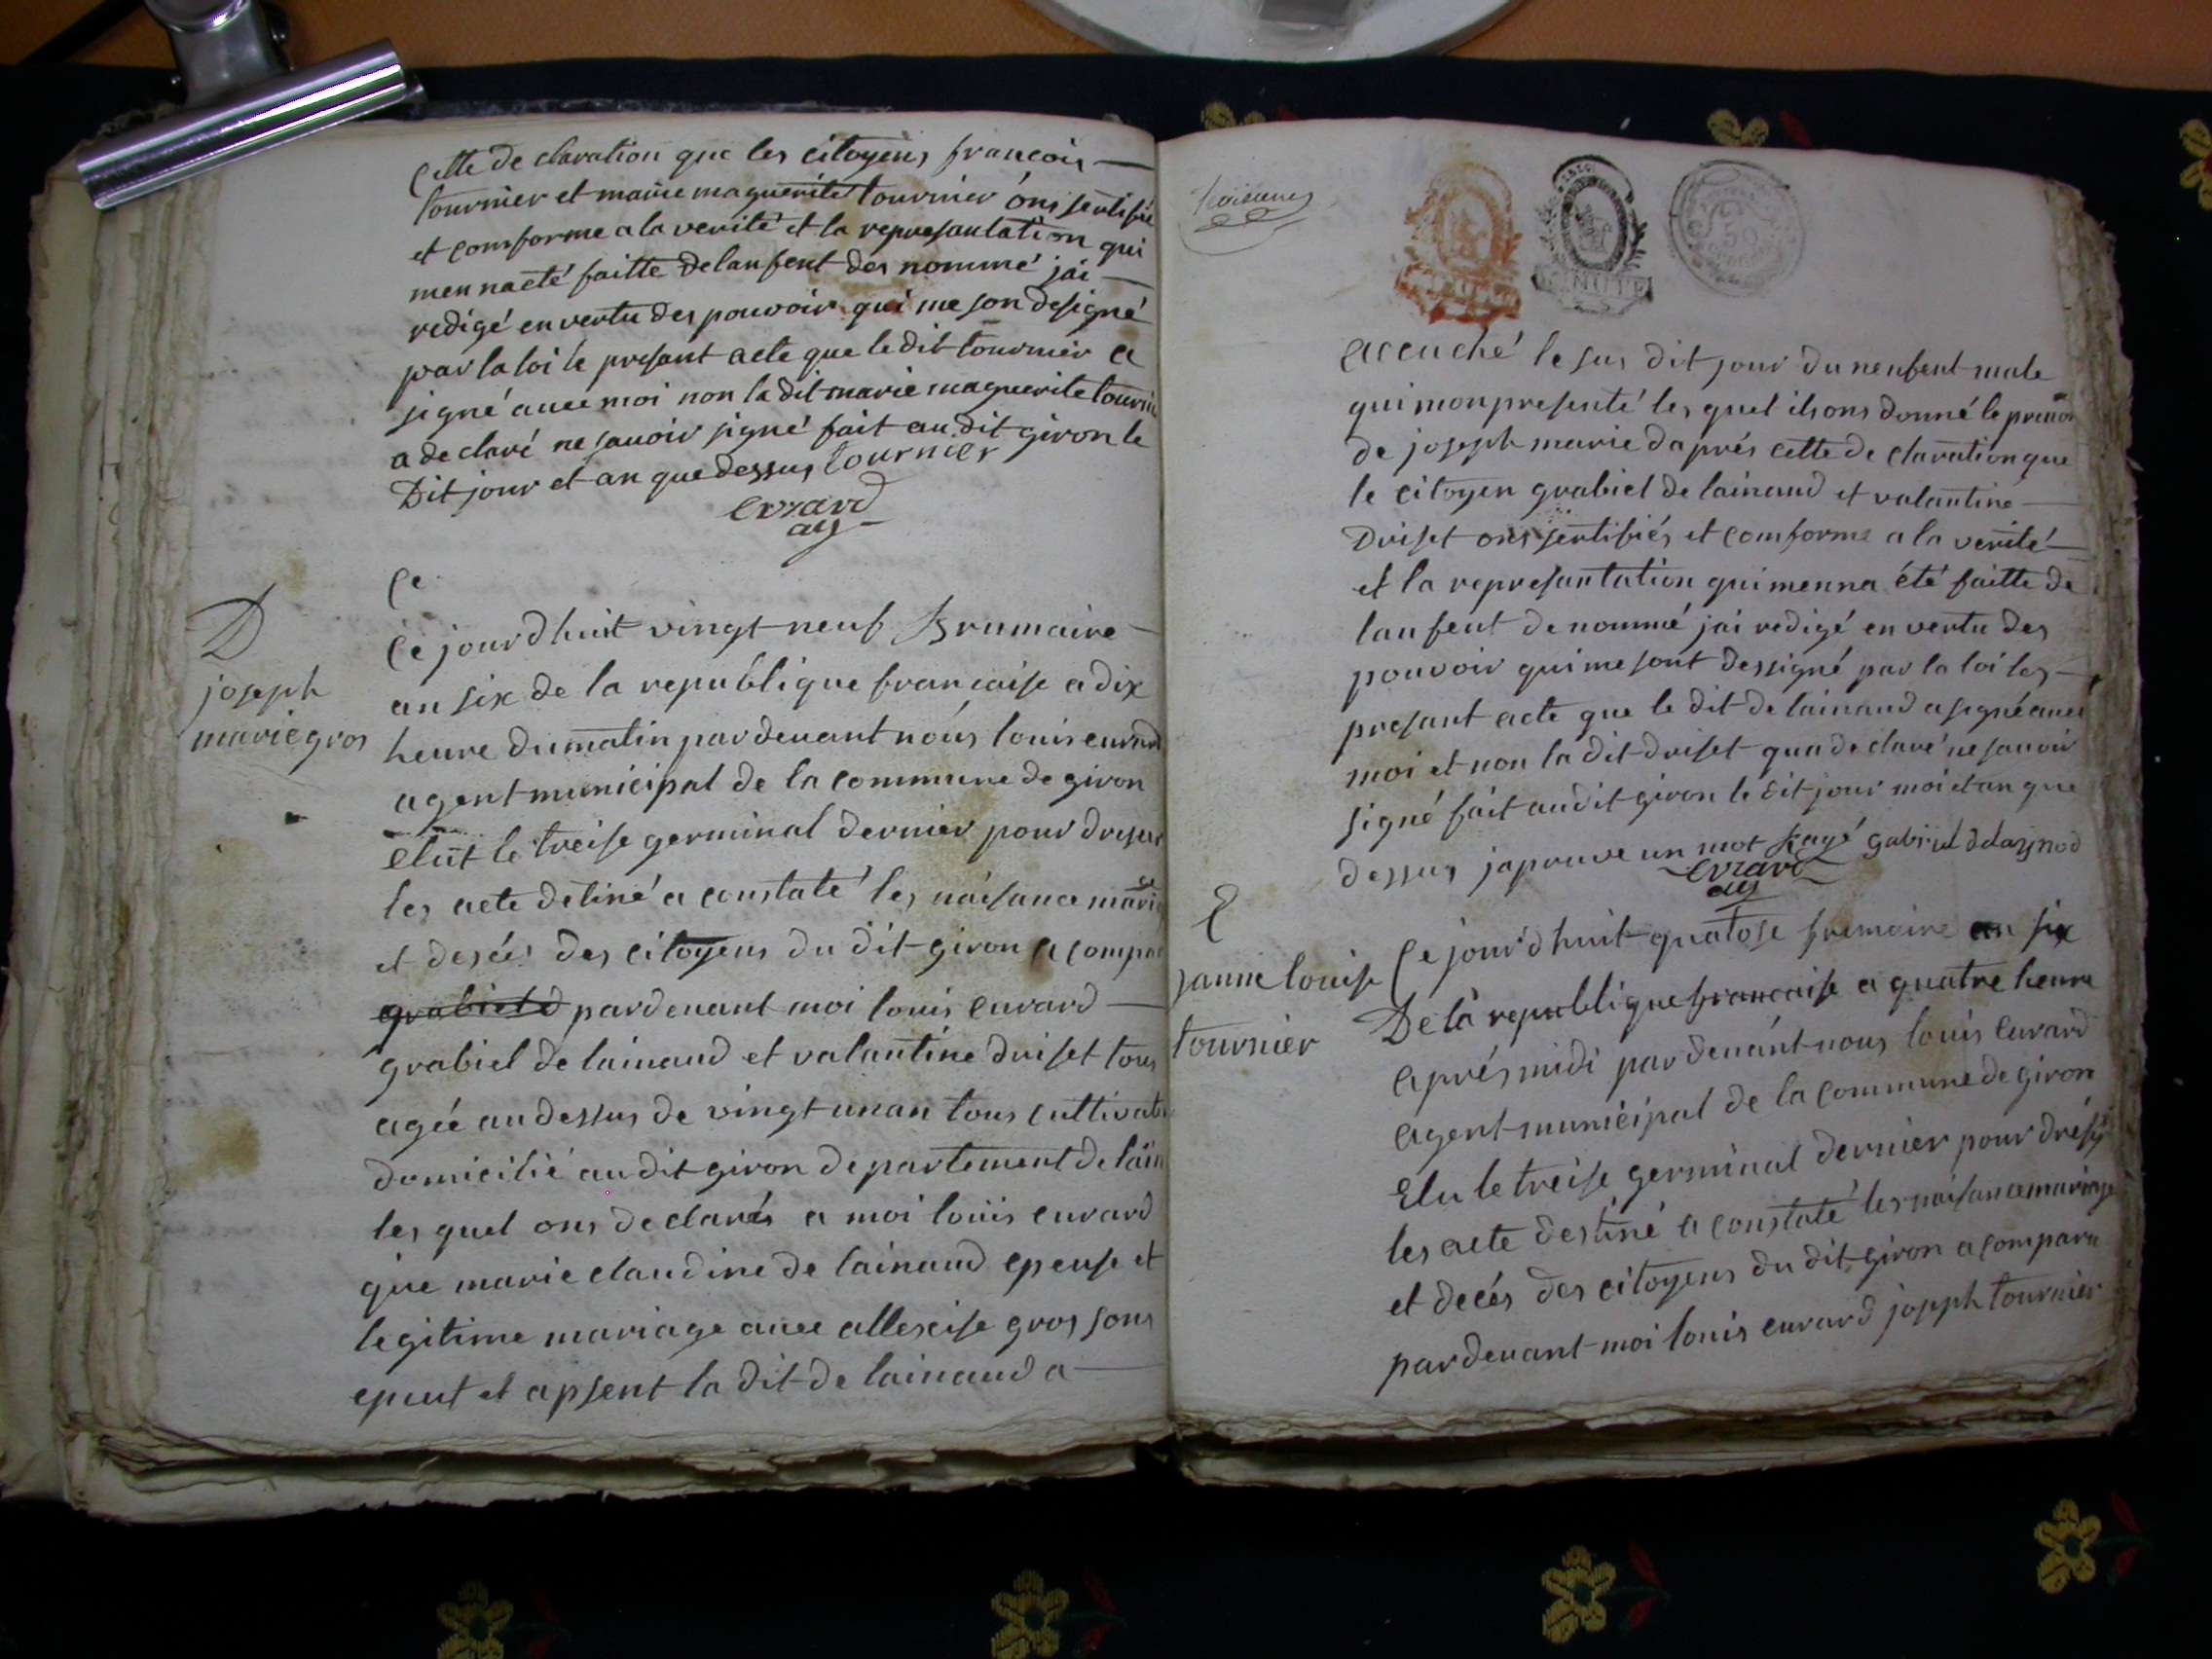 Cette de claration que les citoyens francois
tournier et marie maguerite tournier ons sertifié
et comforme a la verité et la represantation qui
men nacté faitte de lanfent des nommé jai
redigé en vertu des pouvoir qui me son designé
par la loi le presant acte que le dit tournier a
signé avec moi non la dit marie maguerite tourni
a declaré ne savoir signé fait au dit giron le
Dit jour et an que dessus tournier
evrard
ag
Ce
D
joseph
marie gros
Ce jourdhuit vingt neuf Brumaire
an six de la republique francaise a dix
heure du matin par devant noús louis evrard
agent municipal de la commune de giron
elut le treise germinal dernier pour dreser
les acte detiné a constaté les naisance mariage
et desée des citoyens du dit giron a compar
grabield par devant moi louis evrard
grabiel de lainaud et valantine driset tous
agée au dessus de vingt un an tous cultivate
domicilié au dit giron departement de lain
les quel ons declarés a moi louis evrard
que marie claudine de lainaud epeuse et
legitime mariage avec allescise gros sons
epeut et apsent la dit de lainaud a
accuché le sus dit jour du nenfent male
qui mon presenté les quel ils ons donné le prenon
de joseph marie daprés cette de claration que
le citoyen grabiel de lainaud et valantine
Driset ons sertifiés et comforme a la verité
et la represantation qui menna été faitte de
lanfent denommé jai redigé en vertu des
pouvoir qui me sont dessigné par la loi les
presant acte que le dit de lainaud a signé avec
moi et non la dit driset qua declaré ne savoir
signé fait au dit giron le dit jour moi et an que
dessus japrouve un mot rayé gabriel ddaynod
evrard
ag
janne louise
tournier
Ce jourdhuit quatose frimaire an six
De la republique francaise a quatre heure
aprés midi par devánt nous louis evrard
agent municipal de la commune de giron
Elu le treise germinal dernier pour dresé
les acte destiné a constaté les naisance mariage
et decés des citoyens du dit giron a comparu
par devant moi louis evrard jopph tournier